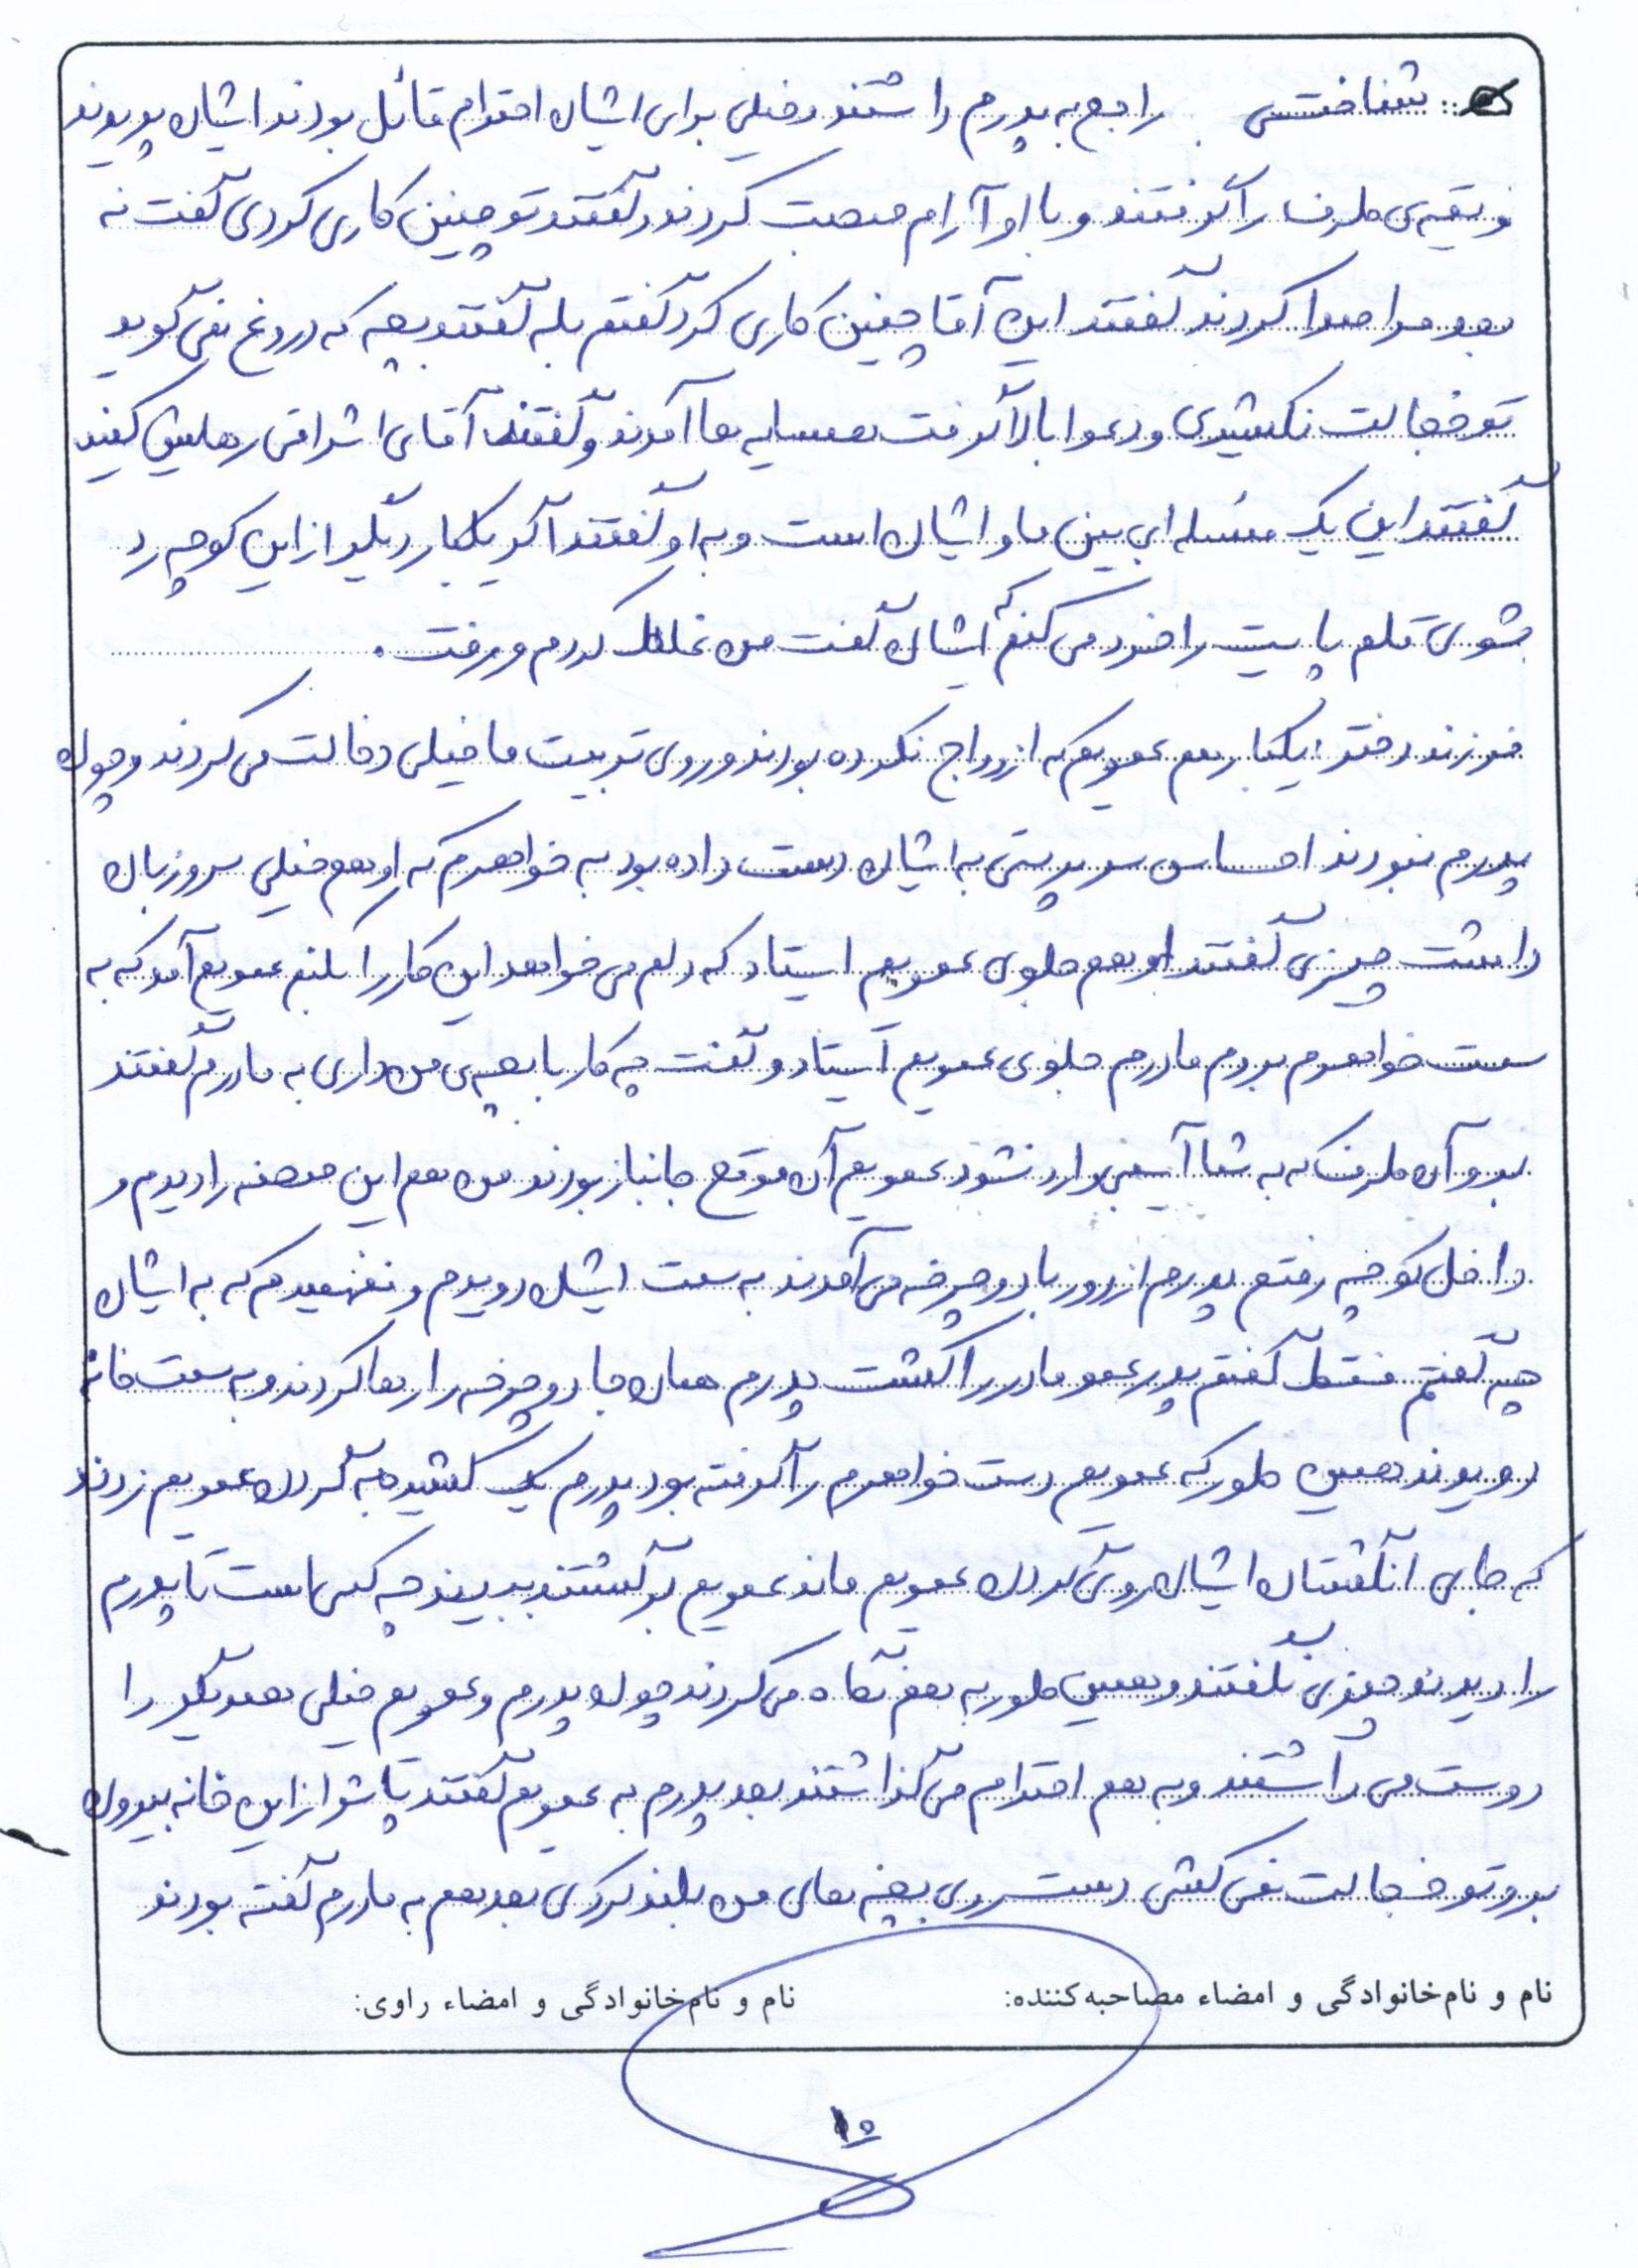 شناختی راجع به پدرم داشتند و خیلی برای ایشان احترام قائل بودند ایشان پریدند
و یقیه‌ی طرف را گرفتند و با او آرام صحبت کردند و گفتند تو چنین کاری کردی گفت نه
بعد مرا صدا کردند گفتند این آقا چنین کاری کرد گفتم بله گفتند بچه که دروغ نمی گوید
تو خجالت نکشیدی و دعوا بالا گرفت همسایه ها آمدند و گفتند آقای اشراقی رهایش کنید
گفتند این یک مسئله ای بین ما و ایشان است و به او گفتند اگر یکبار دیگر از این کوچه رد
بشوی قلم پایت را خرد می کنم که ایشان گفت من غلط کردم و رفت .
فرزند دختر : یکبار هم عمویم که ازدواج نکرده بودند و روی تربیت ما خیلی دخالت می کردند و چون
پدرم نبودند احساس سرپرستی به ایشان دست داده بود به خواهرم که او هم خیلی سروزبان
داشت چیزی گفتند او هم جلوی عمویم ایستاد که دلم می خواهد این کار را بکنم عمویم آمد که به
سمت خواهرم برود مادرم جلوی عمویم ایستاد و گفت چه کار با بچه‌ی من داری به مادرم گفتند
برو آن طرف که به شما آسیبی وارد نشود عمویم آن موقع جانباز بودند من هم این صحنه را دیدم و
داخل کوچه رفتم پدرم از دور با دوچرخه می آمدند به سمت ایشان دویدم و نفهمیدم که به ایشان
چه گفتم فقط گفتم پدر عمو مادر را کشت پدرم همان جا دوچرخه را رها کردند و به سمت خانه
دویدند همین طور که عمویم دست خواهرم را گرفته بود پدرم یک کشیده به گردن عمویم زدند
که جای انگشتان ایشان روی گردن عمویم ماند عمویم برگشتند ببینند چه کسی است تا پدرم
را دیدند چیزی نگفتند و همین طور به هم نگاه می کردند چون پدرم و عمویم خیلی همدیگر را
دوست می داشتند و به هم احترام می گذاشتند بعد پدرم به عمویم گفتند پاشو از این خانه بیرون
برو تو خجالت نمی کشی دست روی بچه های من بلند کردی بعد هم به مادرم گفته بودند
نام و نام‌خانوادگی و امضاء مصاحبه‌کننده: نام و نام‌خانوادگی و امضاء راوی:
۱۵